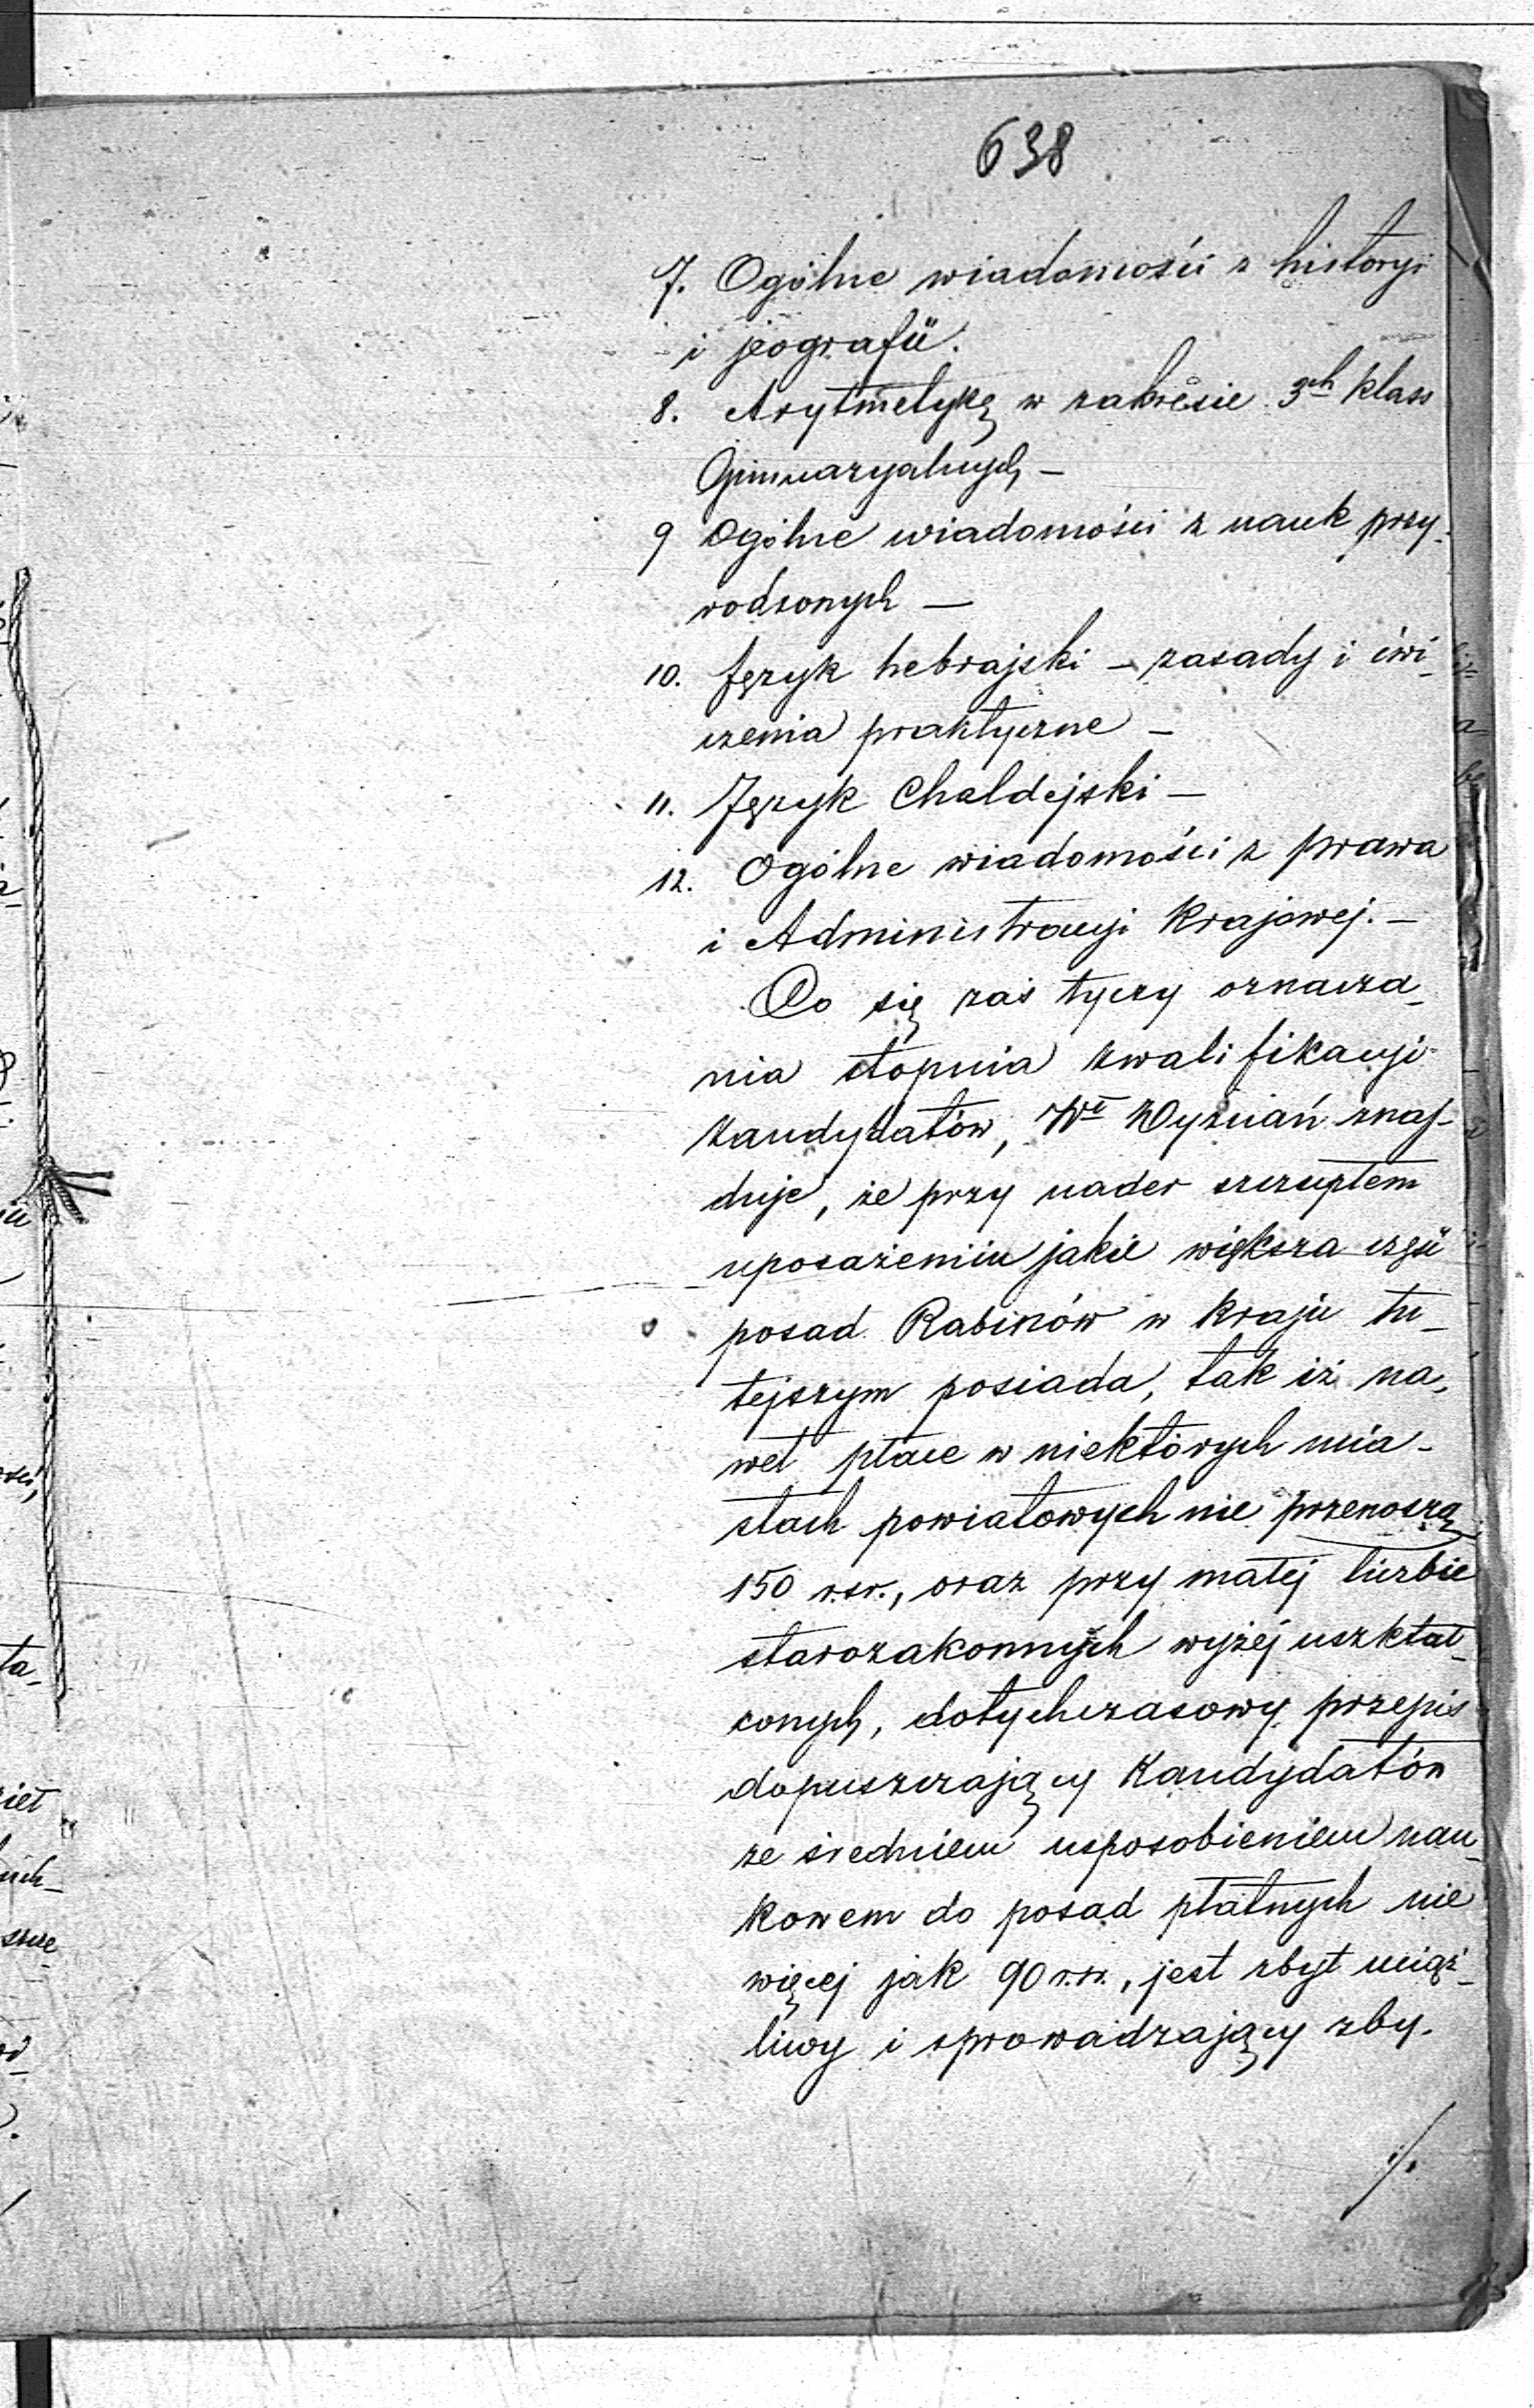 638
7. Ogólne wiadomości z historyi
i jeografii.
8. Arytmetykę w zakresie 3ch klass
Gimnazyalnych –
9 Ogólne wiadomości z nauk przy-
rodzonych —
10. Język hebrajski – zasady i ćwi-
czenia praktyczne –
11. Język Chaldejski –
12. Ogólne wiadomości z prawa
i Administracyi Krajowej. –
Co się zaś tyczy oznacza-
nia stopnia kwalifikacyi
kandydatów, Wł Wyznań znaj-
duje, że przy nader szczupłem
uposażeniu jakie większa część
posad Rabinów w Kraju tu-
tejszym posiada, tak iż na-
wet płace w niektórych mia-
stach powiatowych nie przenoszą
150 r.sr., oraz przy małej liczbie
starozakonnych wyżej uszktał-
conych, dotychczasowy przepis
dopuszczający Kandydatów
ze średniem usposobieniem nau-
kowem do posad płatnych nie
więcej jak 90 r.sr., jest zbyt uciąż-
liwy i sprowadzający zby-
./.